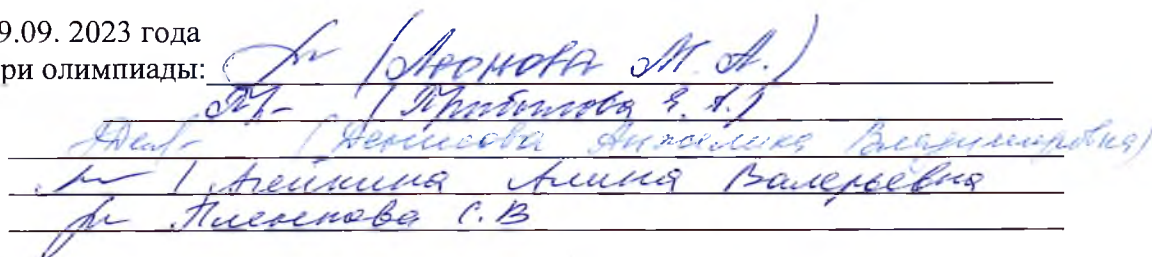 9.09. 2023 года
ри олимпиады: (Леонова М. А.)
(Прибылова Я. А.)
(Денисова Анжелика Владимировна)
( Алейкина Алина Валерьевна
С. В